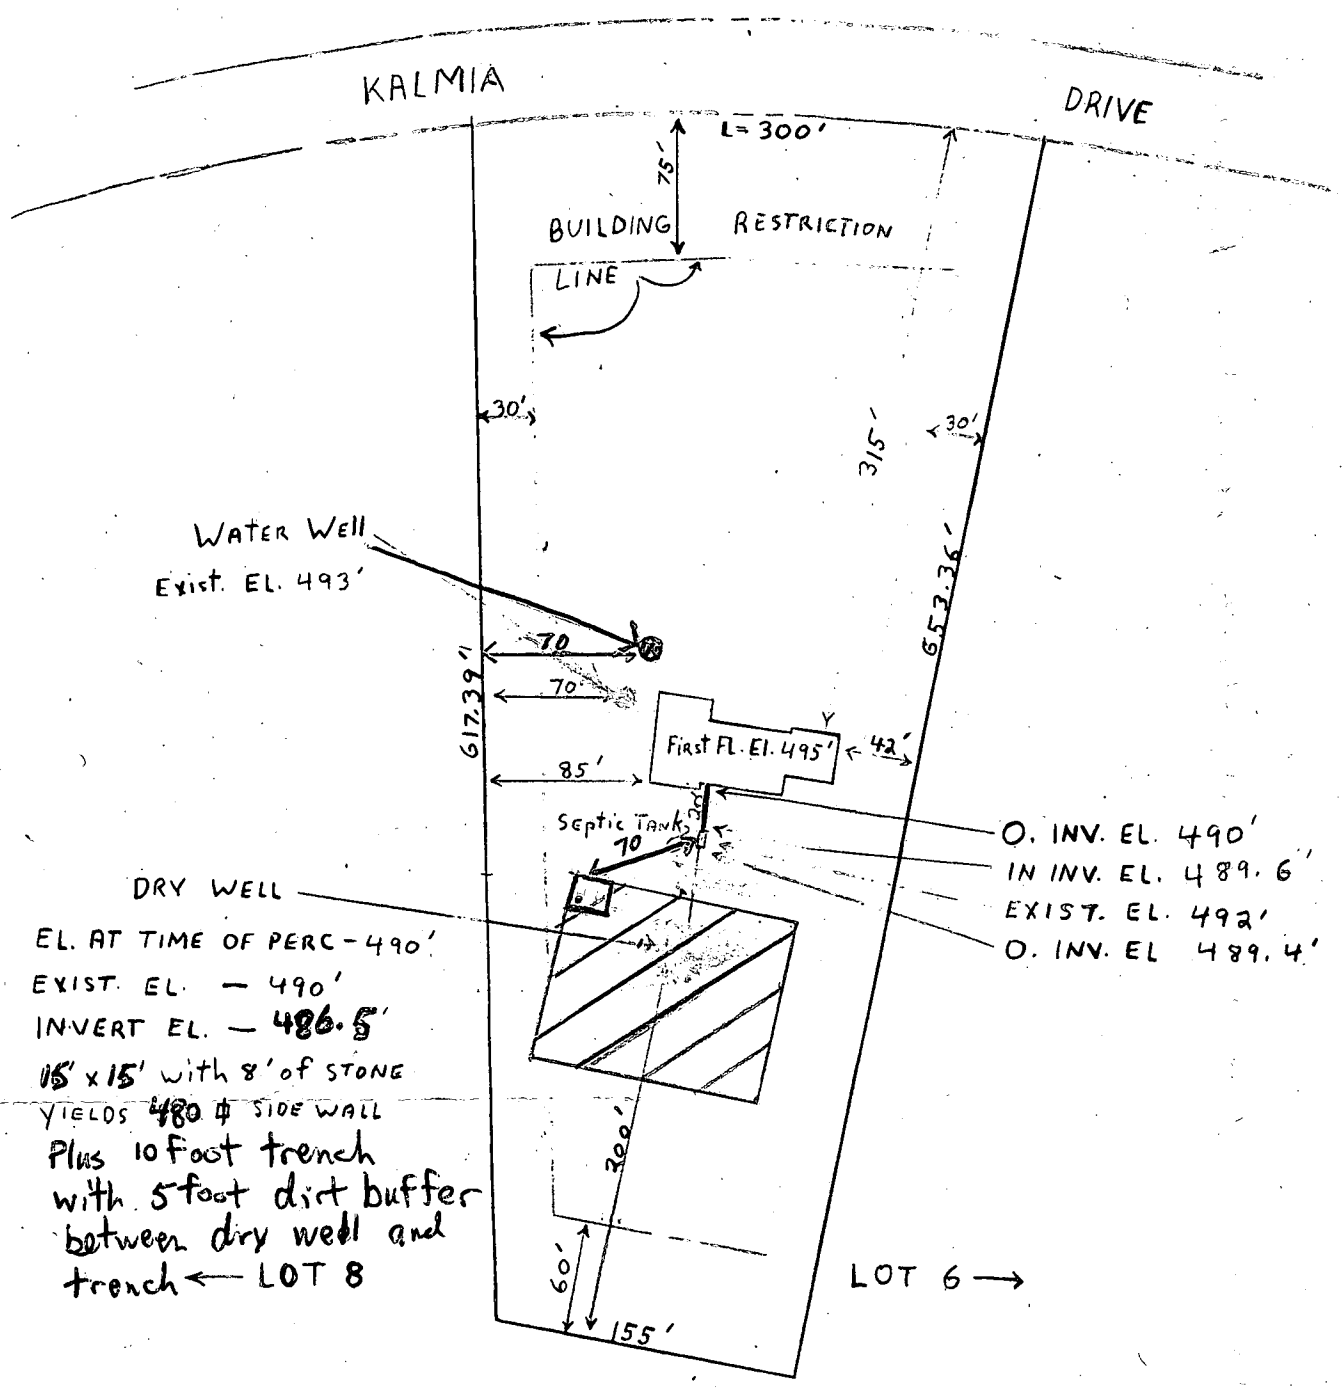 KALMIA DRIVE
L= 300'
75'
BUILDING RESTRICTION
LINE
30'
30'
315'
WATER WEll
Exist. EL. 493'
653.36'
70
70'
617.39'
First Fl. El. 495'
42'
85'
Septic Tank
70
O. INV. EL. 490'
IN INV. EL. 489.6'
EXIST. EL. 492'
O. INV. EL 489.4'
DRY WELL
EL. AT TIME OF PERC - 490'
EXIST. EL. - 490'
INVERT EL. - 486.5'
15' x 15' with 8' of STONE
YIELDS 480 SIDE WALL
Plus 10 Foot trench
with 5 foot dirt buffer
between dry well and
trench ← LOT 8
200'
60'
155'
LOT 6 →